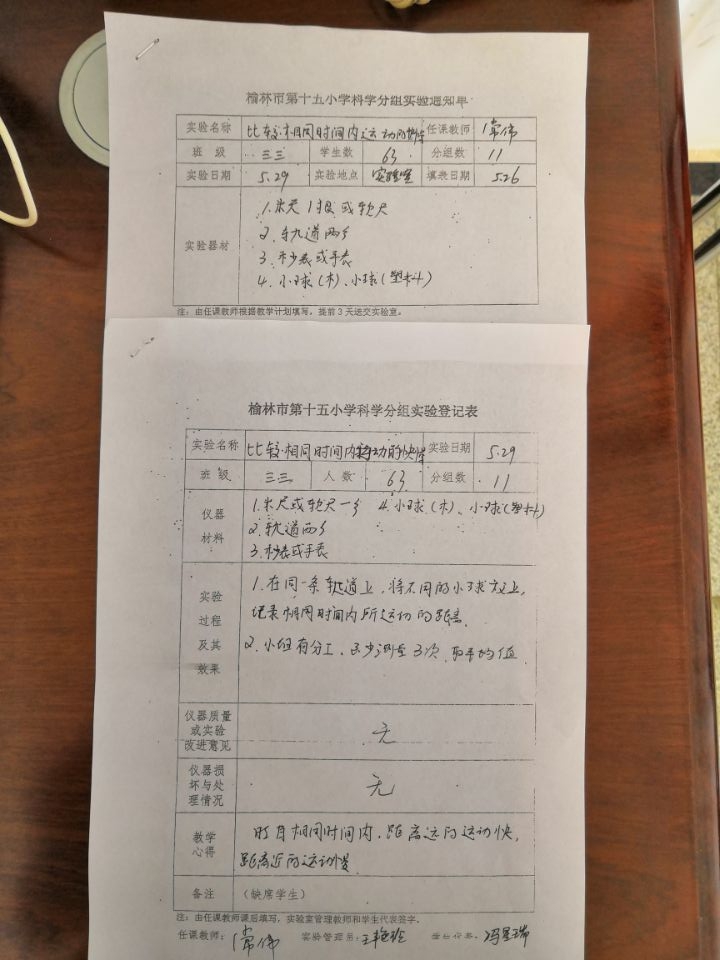 榆林市第十五小学科学分组实验通知单
实验名称 比较相同时间内运动的快慢 任课教师 常伟
班 级 三三 学生数 63 分组数 11
实验日期 5.29 实验地点 实验室 填表日期 5.26
实验器材
1.米尺1根或软尺
2.轨道两个
3.秒表或手表
4.小球(木)、小球(塑料)
注：由任课教师根据教学计划填写，提前3天送交实验室。
榆林市第十五小学科学分组实验登记表
实验名称 比较相同时间内运动的快慢 实验日期 5.29
班 级 三三 人 数 63 分组数 11
仪器材料
1.米尺或软尺一个 4.小球(木)、小球(塑料)
2.轨道两个
3.秒表或手表
实验过程及其效果
1.在同一条轨道上，将不同的小球放上，
记录相同时间内所运动的距离.
2.小组有分工，至少测量3次，取平均值
仪器质量或实验改进意见 无
仪器损坏与处理情况 无
教学心得
明白相同时间内，距离远的运动快，
距离近的运动慢
备注 （缺席学生）
注：由任课教师课后填写，实验室管理教师和学生代表签字。
任课教师：常伟 实验管理员：王艳玲 学生代表：冯星瑞